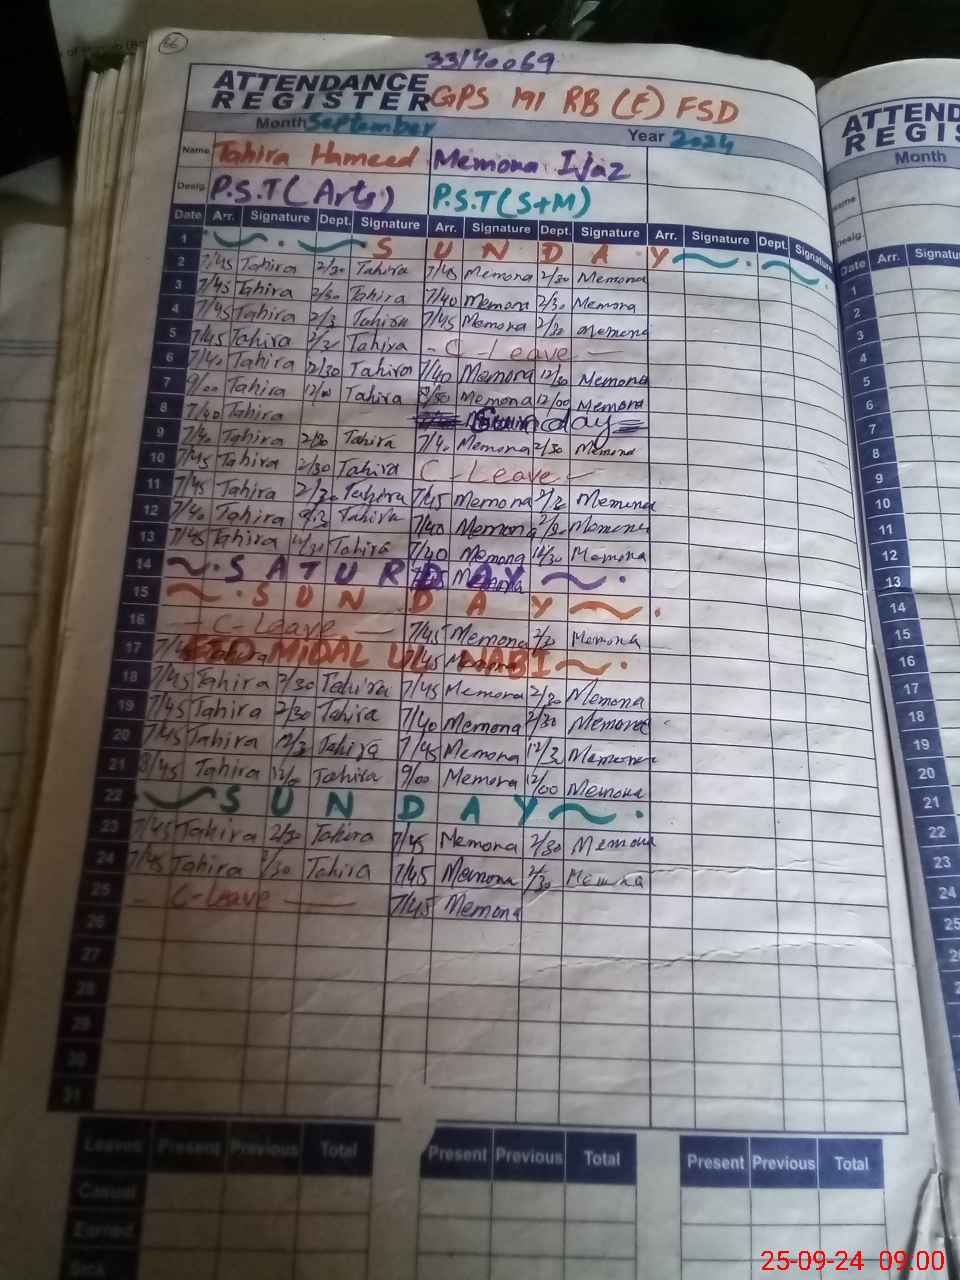 66
33/40069
ATTENDANCE
REGISTER GPS 191 RB (E) FSD
Month September Year 2024
Name Tahira Hameed Memona Ijaz
Desig. P.S.T (Arts) P.S.T (S+M)
Date Arr. Signature Dept. Signature Arr. Signature Dept. Signature Arr. Signature Dept. Signature
1 SUNDAY
2 7/45 Tahira 2/30 Tahira 7/45 Memona 2/30 Memona
3 7/45 Tahira 2/30 Tahira 7/40 Memona 2/30 Memona
4 7/45 Tahira 2/3 Tahira 7/45 Memona 2/30 Memona
5 7/45 Tahira Tahira - C - Leave -
6 7/40 Tahira 12/30 Tahira 7/40 Memona 12/30 Memona
7 9/00 Tahira 12/00 Tahira 8/30 Memona 12/00 Memona
8 7/40 Tahira Sunday
9 7/40 Tahira 2/30 Tahira 7/40 Memona 2/30 Memona
10 7/45 Tahira 2/30 Tahira C - Leave -
11 7/45 Tahira 2/30 Tahira 7/45 Memona Memona
12 7/40 Tahira Tahira 7/40 Memona 2/30 Memona
13 7/45 Tahira 12/30 Tahira 7/40 Memona 12/30 Memona
14 SATURDAY
15 SUNDAY
16 - C-Leave - 7/45 Memona Memona
17 EID MIDAL UL NABI
18 7/45 Tahira 2/30 Tahira 7/45 Memona 2/30 Memona
19 7/45 Tahira 2/30 Tahira 7/40 Memona 2/30 Memona
20 7/45 Tahira Tahira 7/45 Memona 12/3 Memona
21 8/45 Tahira Tahira 9/00 Memona 12/00 Memona
22 SUNDAY
23 7/45 Tahira 2/30 Tahira 7/45 Memona 2/30 Memona
24 7/45 Tahira 2/30 Tahira 7/45 Memona 2/30 Memona
25 - C-Leave - 7/45 Memona
26
27
28
29
30
31
Leaves Present Previous Total Present Previous Total Present Previous Total
Casual
Earned
Sick
ATTEND
REGIS
Month
Name
Desig.
Date Arr. Signatu
1
2
3
4
5
6
7
8
9
10
11
12
13
14
15
16
17
18
19
20
21
22
23
24
25
25-09-24 09.00